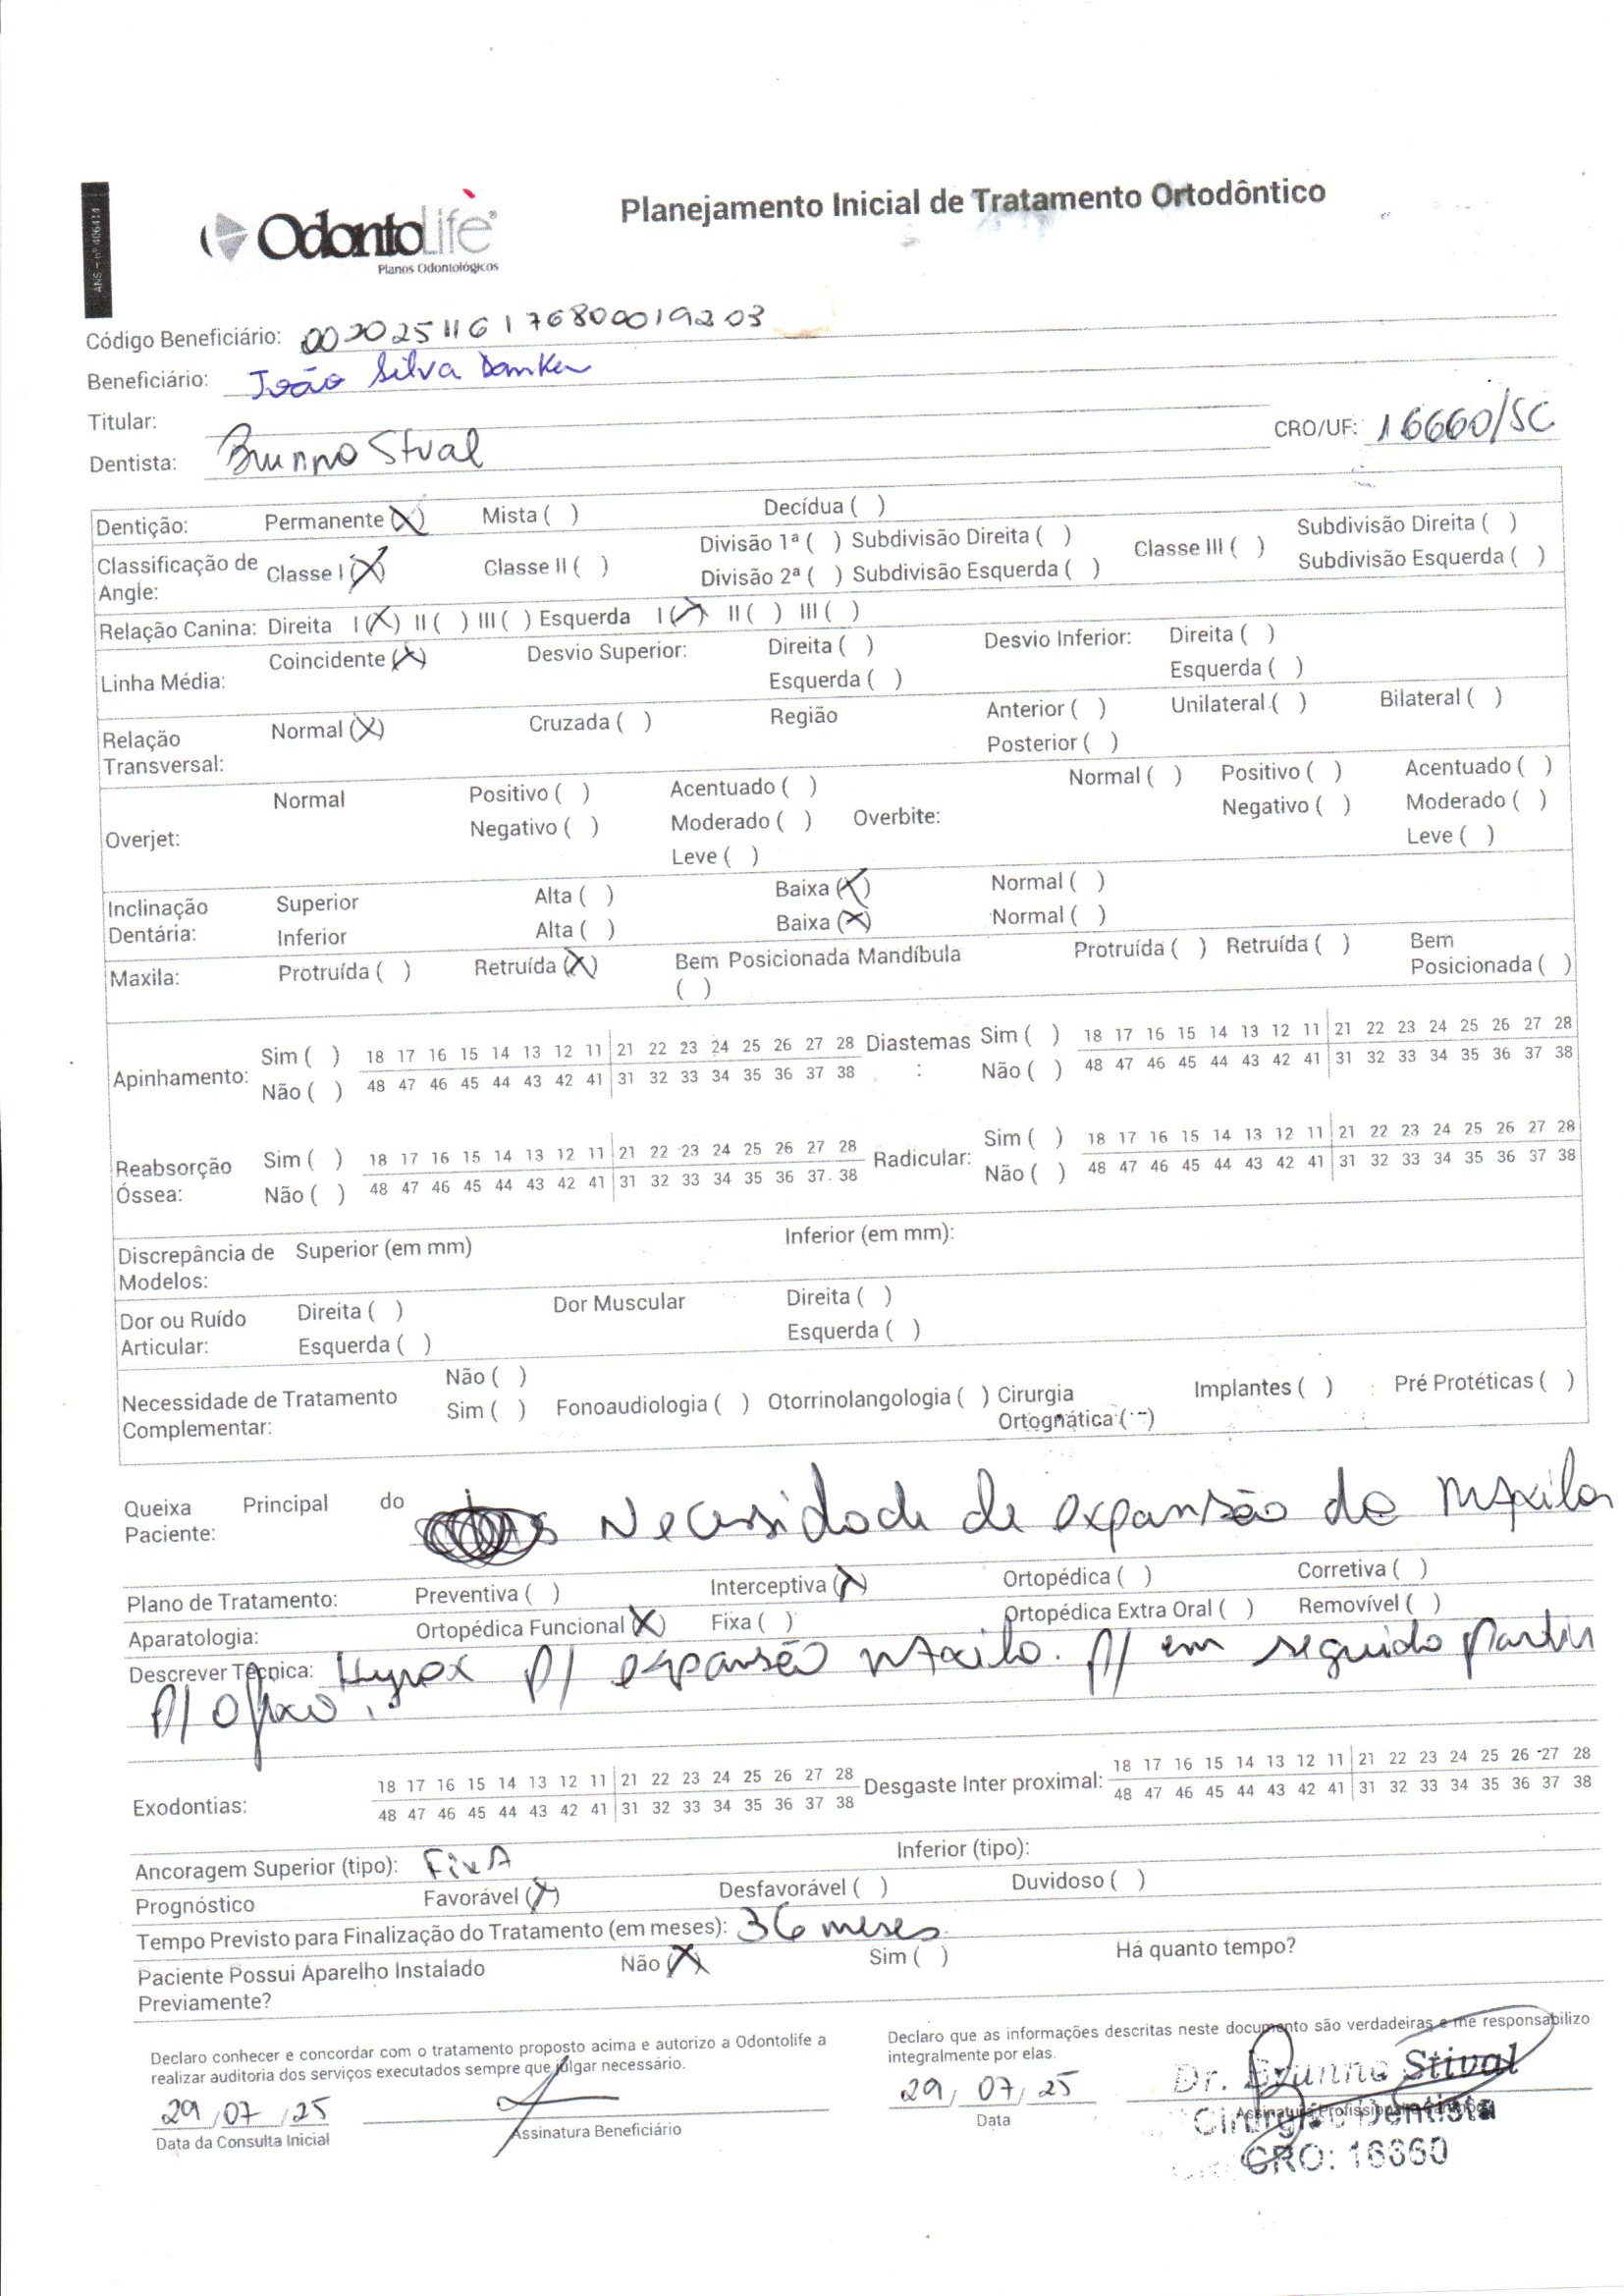 ANS - nº 406414
OdontoLife®
Planos Odontológicos
Planejamento Inicial de Tratamento Ortodôntico
Código Beneficiário: 0020251161768000019203
Beneficiário: João Silva
Titular:
Dentista: Brunno Stival CRO/UF: 16660/SC
Dentição: Permanente (X) Mista ( ) Decídua ( )
Classificação de Angle: Classe I (X) Classe II ( ) Divisão 1ª ( ) Subdivisão Direita ( ) Classe III ( ) Subdivisão Direita ( )
Divisão 2ª ( ) Subdivisão Esquerda ( ) Subdivisão Esquerda ( )
Relação Canina: Direita I (X) II ( ) III ( ) Esquerda I (X) II ( ) III ( )
Linha Média: Coincidente (X) Desvio Superior: Direita ( ) Desvio Inferior: Direita ( )
Esquerda ( ) Esquerda ( )
Relação Transversal: Normal (X) Cruzada ( ) Região Anterior ( ) Unilateral ( ) Bilateral ( )
Posterior ( )
Overjet: Normal Positivo ( ) Acentuado ( ) Overbite: Normal ( ) Positivo ( ) Acentuado ( )
Negativo ( ) Moderado ( ) Negativo ( ) Moderado ( )
Leve ( ) Leve ( )
Inclinação Dentária: Superior Alta ( ) Baixa (X) Normal ( )
Inferior Alta ( ) Baixa (X) Normal ( )
Maxila: Protruída ( ) Retruída (X) Bem Posicionada ( ) Mandíbula Protruída ( ) Retruída ( ) Bem Posicionada ( )
Apinhamento: Sim ( ) 18 17 16 15 14 13 12 11 21 22 23 24 25 26 27 28 Diastemas: Sim ( ) 18 17 16 15 14 13 12 11 21 22 23 24 25 26 27 28
Não ( ) 48 47 46 45 44 43 42 41 31 32 33 34 35 36 37 38 Não ( ) 48 47 46 45 44 43 42 41 31 32 33 34 35 36 37 38
Reabsorção Óssea: Sim ( ) 18 17 16 15 14 13 12 11 21 22 23 24 25 26 27 28 Radicular: Sim ( ) 18 17 16 15 14 13 12 11 21 22 23 24 25 26 27 28
Não ( ) 48 47 46 45 44 43 42 41 31 32 33 34 35 36 37 38 Não ( ) 48 47 46 45 44 43 42 41 31 32 33 34 35 36 37 38
Discrepância de Modelos: Superior (em mm) Inferior (em mm):
Dor ou Ruído Articular: Direita ( ) Dor Muscular Direita ( )
Esquerda ( ) Esquerda ( )
Necessidade de Tratamento Complementar: Não ( )
Sim ( ) Fonoaudiologia ( ) Otorrinolangologia ( ) Cirurgia Ortognática ( ) Implantes ( ) Pré Protéticas ( )
Queixa Principal do Paciente: Necessidade de expansão da Maxila
Plano de Tratamento: Preventiva ( ) Interceptiva (X) Ortopédica ( ) Corretiva ( )
Aparatologia: Ortopédica Funcional (X) Fixa ( ) Ortopédica Extra Oral ( ) Removível ( )
Descrever Técnica: Hyrax p/ expansão maxila. p/ em seguida partir
p/ o fixo.
Exodontias: 18 17 16 15 14 13 12 11 21 22 23 24 25 26 27 28 Desgaste Inter proximal: 18 17 16 15 14 13 12 11 21 22 23 24 25 26 27 28
48 47 46 45 44 43 42 41 31 32 33 34 35 36 37 38 48 47 46 45 44 43 42 41 31 32 33 34 35 36 37 38
Ancoragem Superior (tipo): FixA Inferior (tipo):
Prognóstico Favorável (X) Desfavorável ( ) Duvidoso ( )
Tempo Previsto para Finalização do Tratamento (em meses): 36 meses
Paciente Possui Aparelho Instalado Previamente? Não (X) Sim ( ) Há quanto tempo?
Declaro conhecer e concordar com o tratamento proposto acima e autorizo a Odontolife a
realizar auditoria dos serviços executados sempre que julgar necessário.
29/07/25
Data da Consulta Inicial Assinatura Beneficiário
Declaro que as informações descritas neste documento são verdadeiras e me responsabilizo
integralmente por elas.
29/07/25
Data
Dr. Brunno Stival
Cirurgião Dentista
CRO: 16660